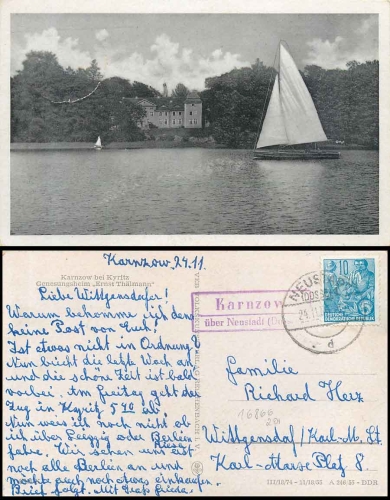 Karnzow 24.11.
Karnzow bei Kyritz
Genesungsheim „Ernst Thälmann“
Liebe Wittgensdorfer!
Warum bekomme ich denn
keine Post von Euch!
Ist etwas nicht in Ordnung?
Nun bricht die letzte Woch an
und die schöne Zeit ist bald
vorbei. Am Freitag geht der
Zug in Kyritz 5 40 ab.
Nun weis ich noch nicht ob
ich über Leipzig oder Berlin
fahre. Wir sehen uns
noch alle Berlin an und
möchte auch noch etwas einkaufen.
Brief folgt. Mit Gruß
Karnzow
über Neustadt
NEUSTADT
(DOSSE)
24.11.
d
10
DEUTSCHE
DEMOKRATISCHE REPUBLIK
Familie
Richard Herz
16866
Wittgensdorf/Karl-M. St.
Karl-Marx-Platz 8.
III/10/74 - III/10/55 A 246/55 - DDR